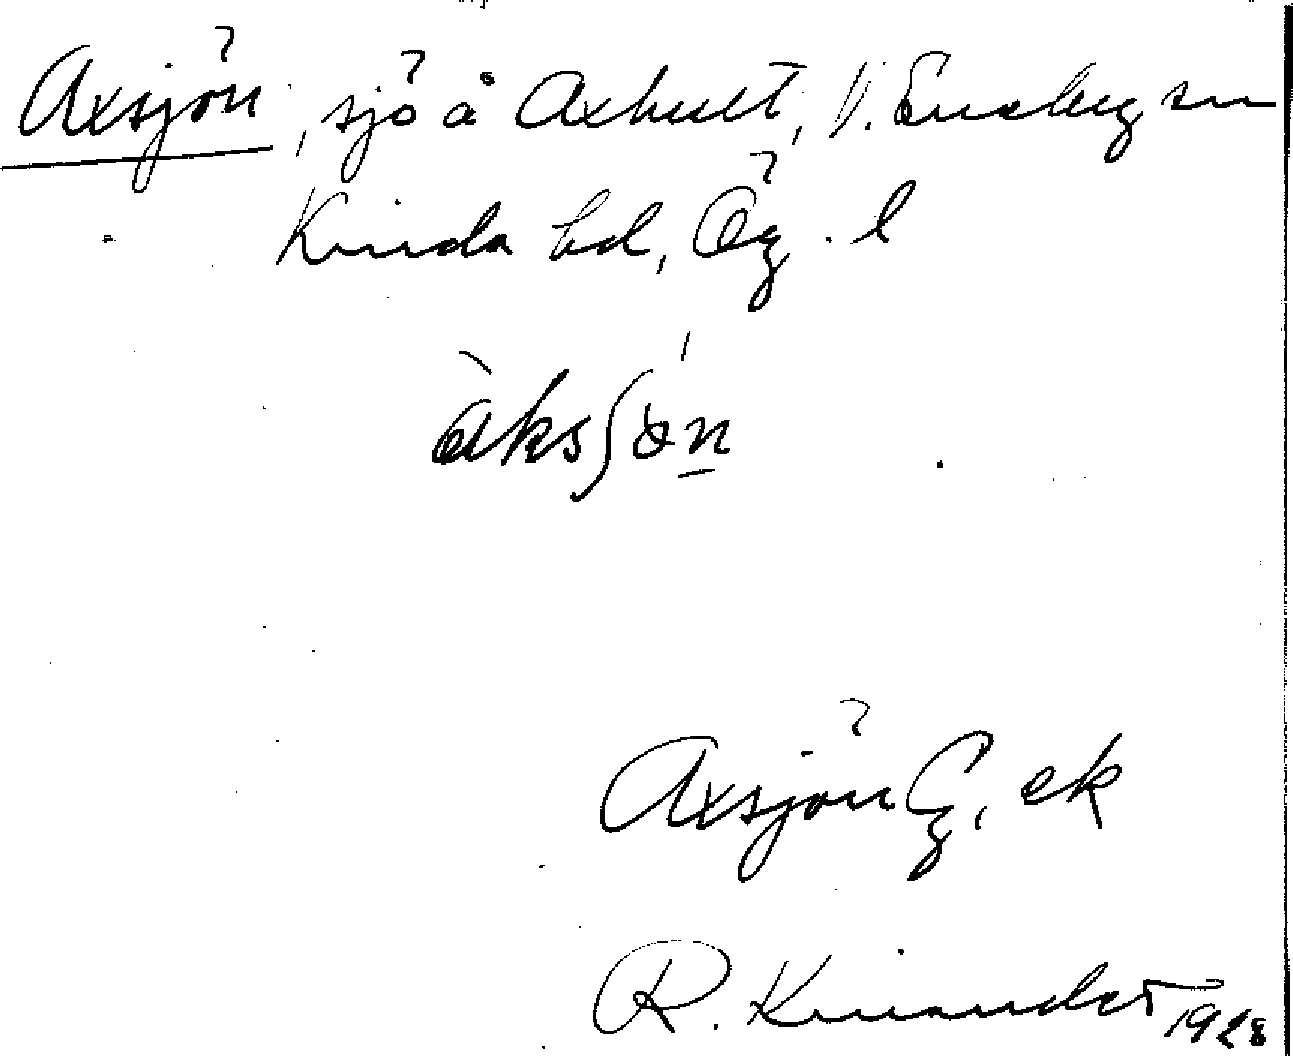 Axsjön, sjö å Axhult, V. Eneby sn
Kinda hd, Ög. l
àksʃö́n
Axsjön G, ek
R. Kinander 1928